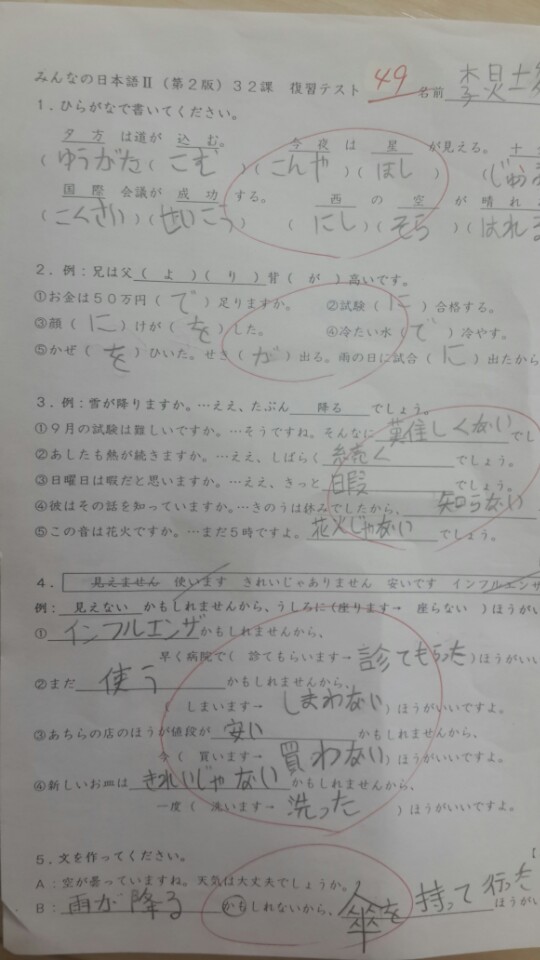 みんなの日本語Ⅱ（第２版）３２課　復習テスト　49　名前
１．ひらがなで書いてください。
夕方 は道が 込む。　今夜 は 星 が見える。　十
（ゆうがた）（こむ）（こんや）（ほし）
国際 会議が 成功 する。　西 の 空 が 晴れ
（こくさい）（せいこう）（にし）（そら）（はれる
２．例：兄は父（　よ　）（　り　）背（　が　）高いです。
①お金は５０万円（で）足りますか。　②試験（に）合格する。
③顔（に）けが（を）した。　④冷たい水（で）冷やす。
⑤かぜ（を）ひいた。せき（が）出る。雨の日に試合（に）出たから
３．例：雪が降りますか。…ええ、たぶん　降る　でしょう。
①９月の試験は難しいですか。…そうですね。そんなに 難しくない でし
②あしたも熱が続きますか。…ええ、しばらく 続く でしょう。
③日曜日は暇だと思いますか。…ええ、きっと 暇 でしょう。
④彼はその話を知っていますか。…きのうは休みでしたから、 知らない
⑤この音は花火ですか。…まだ５時ですよ。 花火じゃない でしょう。
４．　見えません　使います　きれいじゃありません　安いです　インフルエンザ
例：　見えない　かもしれませんから、うしろに（座ります→　座らない　）ほうがい
① インフルエンザ かもしれませんから、
早く病院で（　診てもらいます→ 診てもらった ）ほうがい
②まだ 使う かもしれませんから、
（　しまいます→ しまわない ）ほうがいいですよ。
③あちらの店のほうが値段が 安い かもしれませんから、
今（　買います→ 買わない ）ほうがいいですよ。
④新しいお皿は きれいじゃない かもしれませんから、
一度（　洗います→ 洗った ）ほうがいいですよ。
５．文を作ってください。
A：空が曇っていますね。天気は大丈夫でしょうか。
B： 雨が降る かもしれないから、 傘を持って行った ほうがい